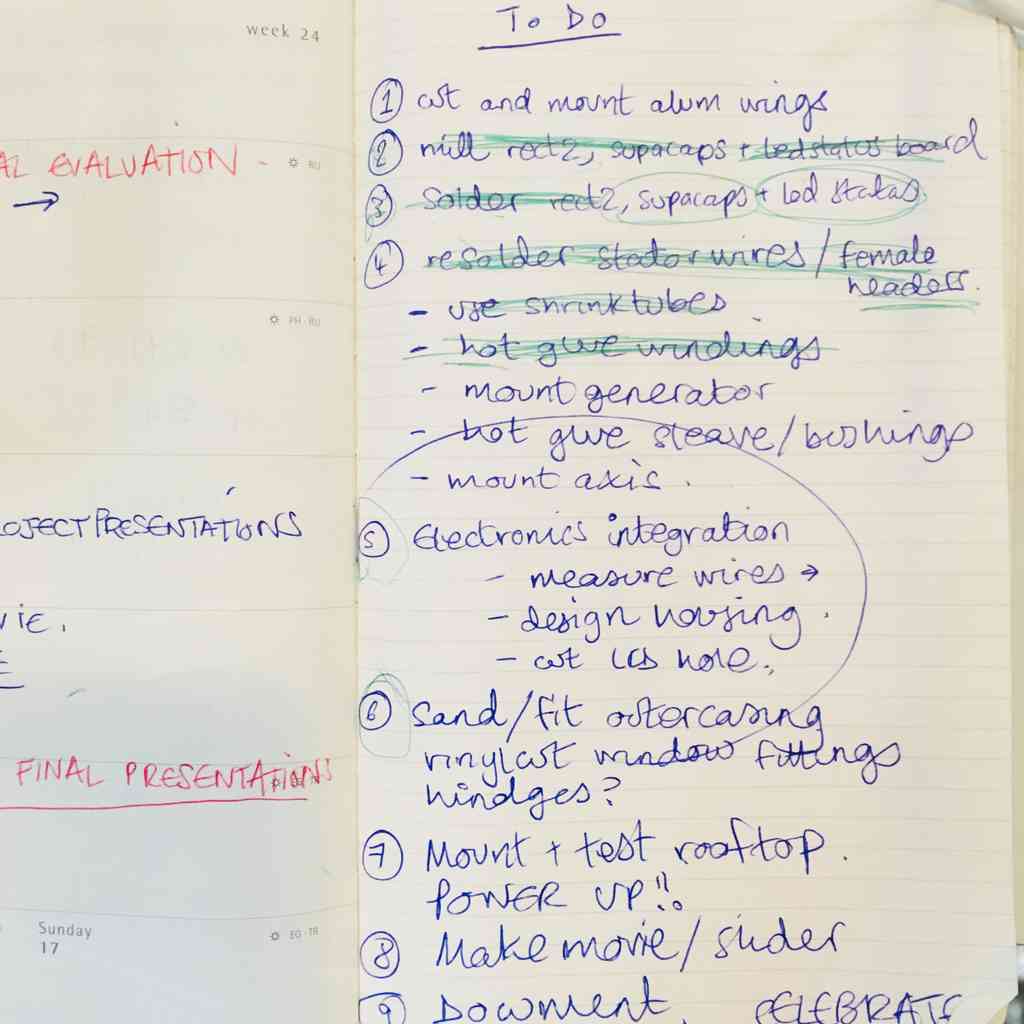 week 24
AL EVALUATION - RU
→
PH·RU
OJECT PRESENTATIONS
VIE.
FINAL PRESENTATIONS
Sunday
17
EG·TR
To Do
① cut and mount alum wings
② mill rect2, supacaps + led status board
③ Solder rect2, supacaps + led status
④ resolder stator wires / female
headers.
- use shrink tubes
- hot glue windings
- mount generator
- hot glue sleave/bushings
- mount axis.
⑤ Electronics integration
- measure wires →
- design housing.
- cut LCD hole.
⑥ Sand/fit outercasing
vinylcut window fittings
hindges?
⑦ Mount + test rooftop.
POWER UP!!
⑧ Make movie/slider
⑨ Document. CELEBRATE